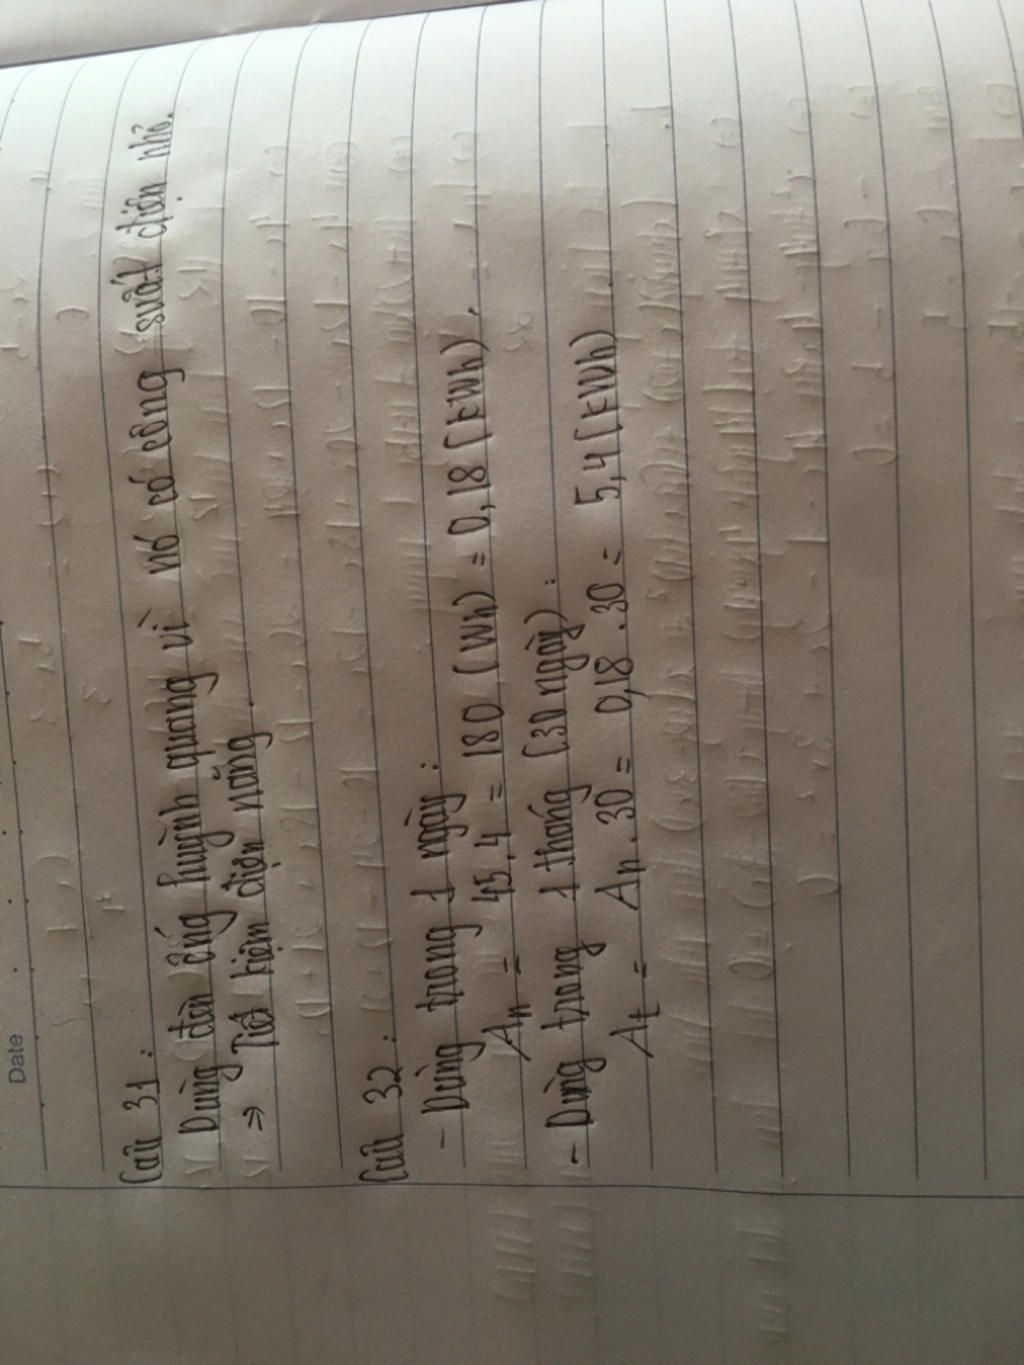 Date
Câu 31:
Dùng đèn ống huỳnh quang vì nó có công suất điện nhỏ.
=> Tiết kiệm điện năng
Câu 32:
- Dùng trong 1 ngày:
An = 45.4 = 180 (Wh) = 0,18 (kWh).
- Dùng trong 1 tháng (30 ngày):
At = An.30 = 0,18.30 = 5,4 (kWh)